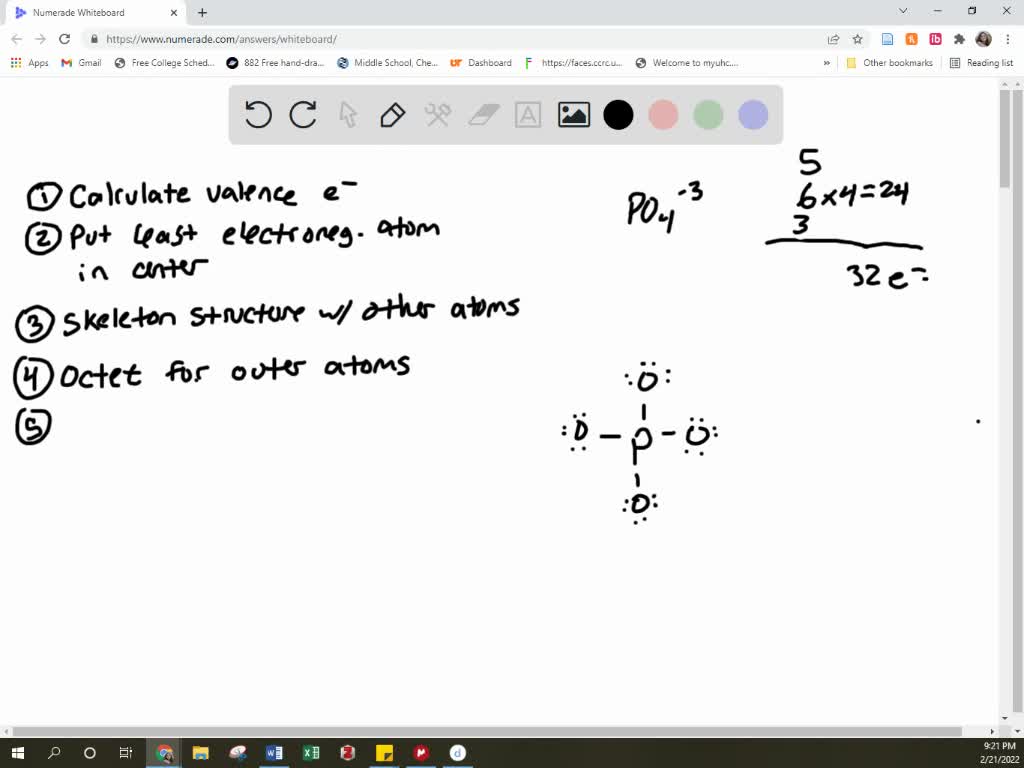 Numerade Whiteboard
https://www.numerade.com/answers/whiteboard/
Apps Gmail Free College Sched... 882 Free hand-dra... Middle School, Che... Dashboard https://faces.ccrc.u... Welcome to myuhc.... » Other bookmarks Reading list
5
① Calculate valence e⁻ PO₄⁻³ 6 × 4 = 24
② Put least electroneg. atom 3
in center 32 e⁻
③ Skeleton structure w/ other atoms
④ Octet for outer atoms
O
⑤ O - P - O
O
9:21 PM
2/21/2022